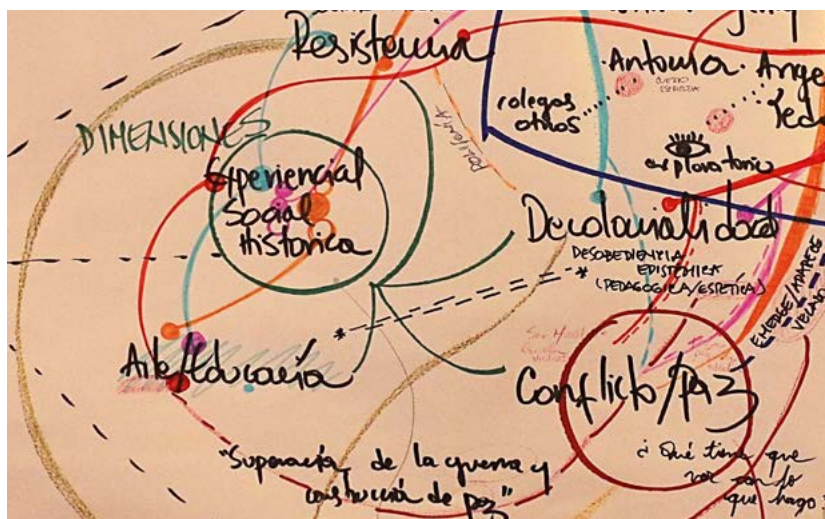 Resistencia
Antonia · Ange
colegas
otros
DIMENSIONES
exploratorio
Experiencial
Social
Historica
Decolonialidad
DESOBEDIENCIA
EPISTEMICA
(PEDAGOGICA/ESTETICA)
EMERGE/APARECE
VELADO
Arte/Educación
Conflicto/Paz
"Superación de la guerra y
construcción de paz"
¿Qué tiene que
ver con lo
que hago?